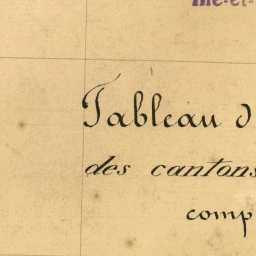 Ille-et-
Tableau d
des cantons
comp